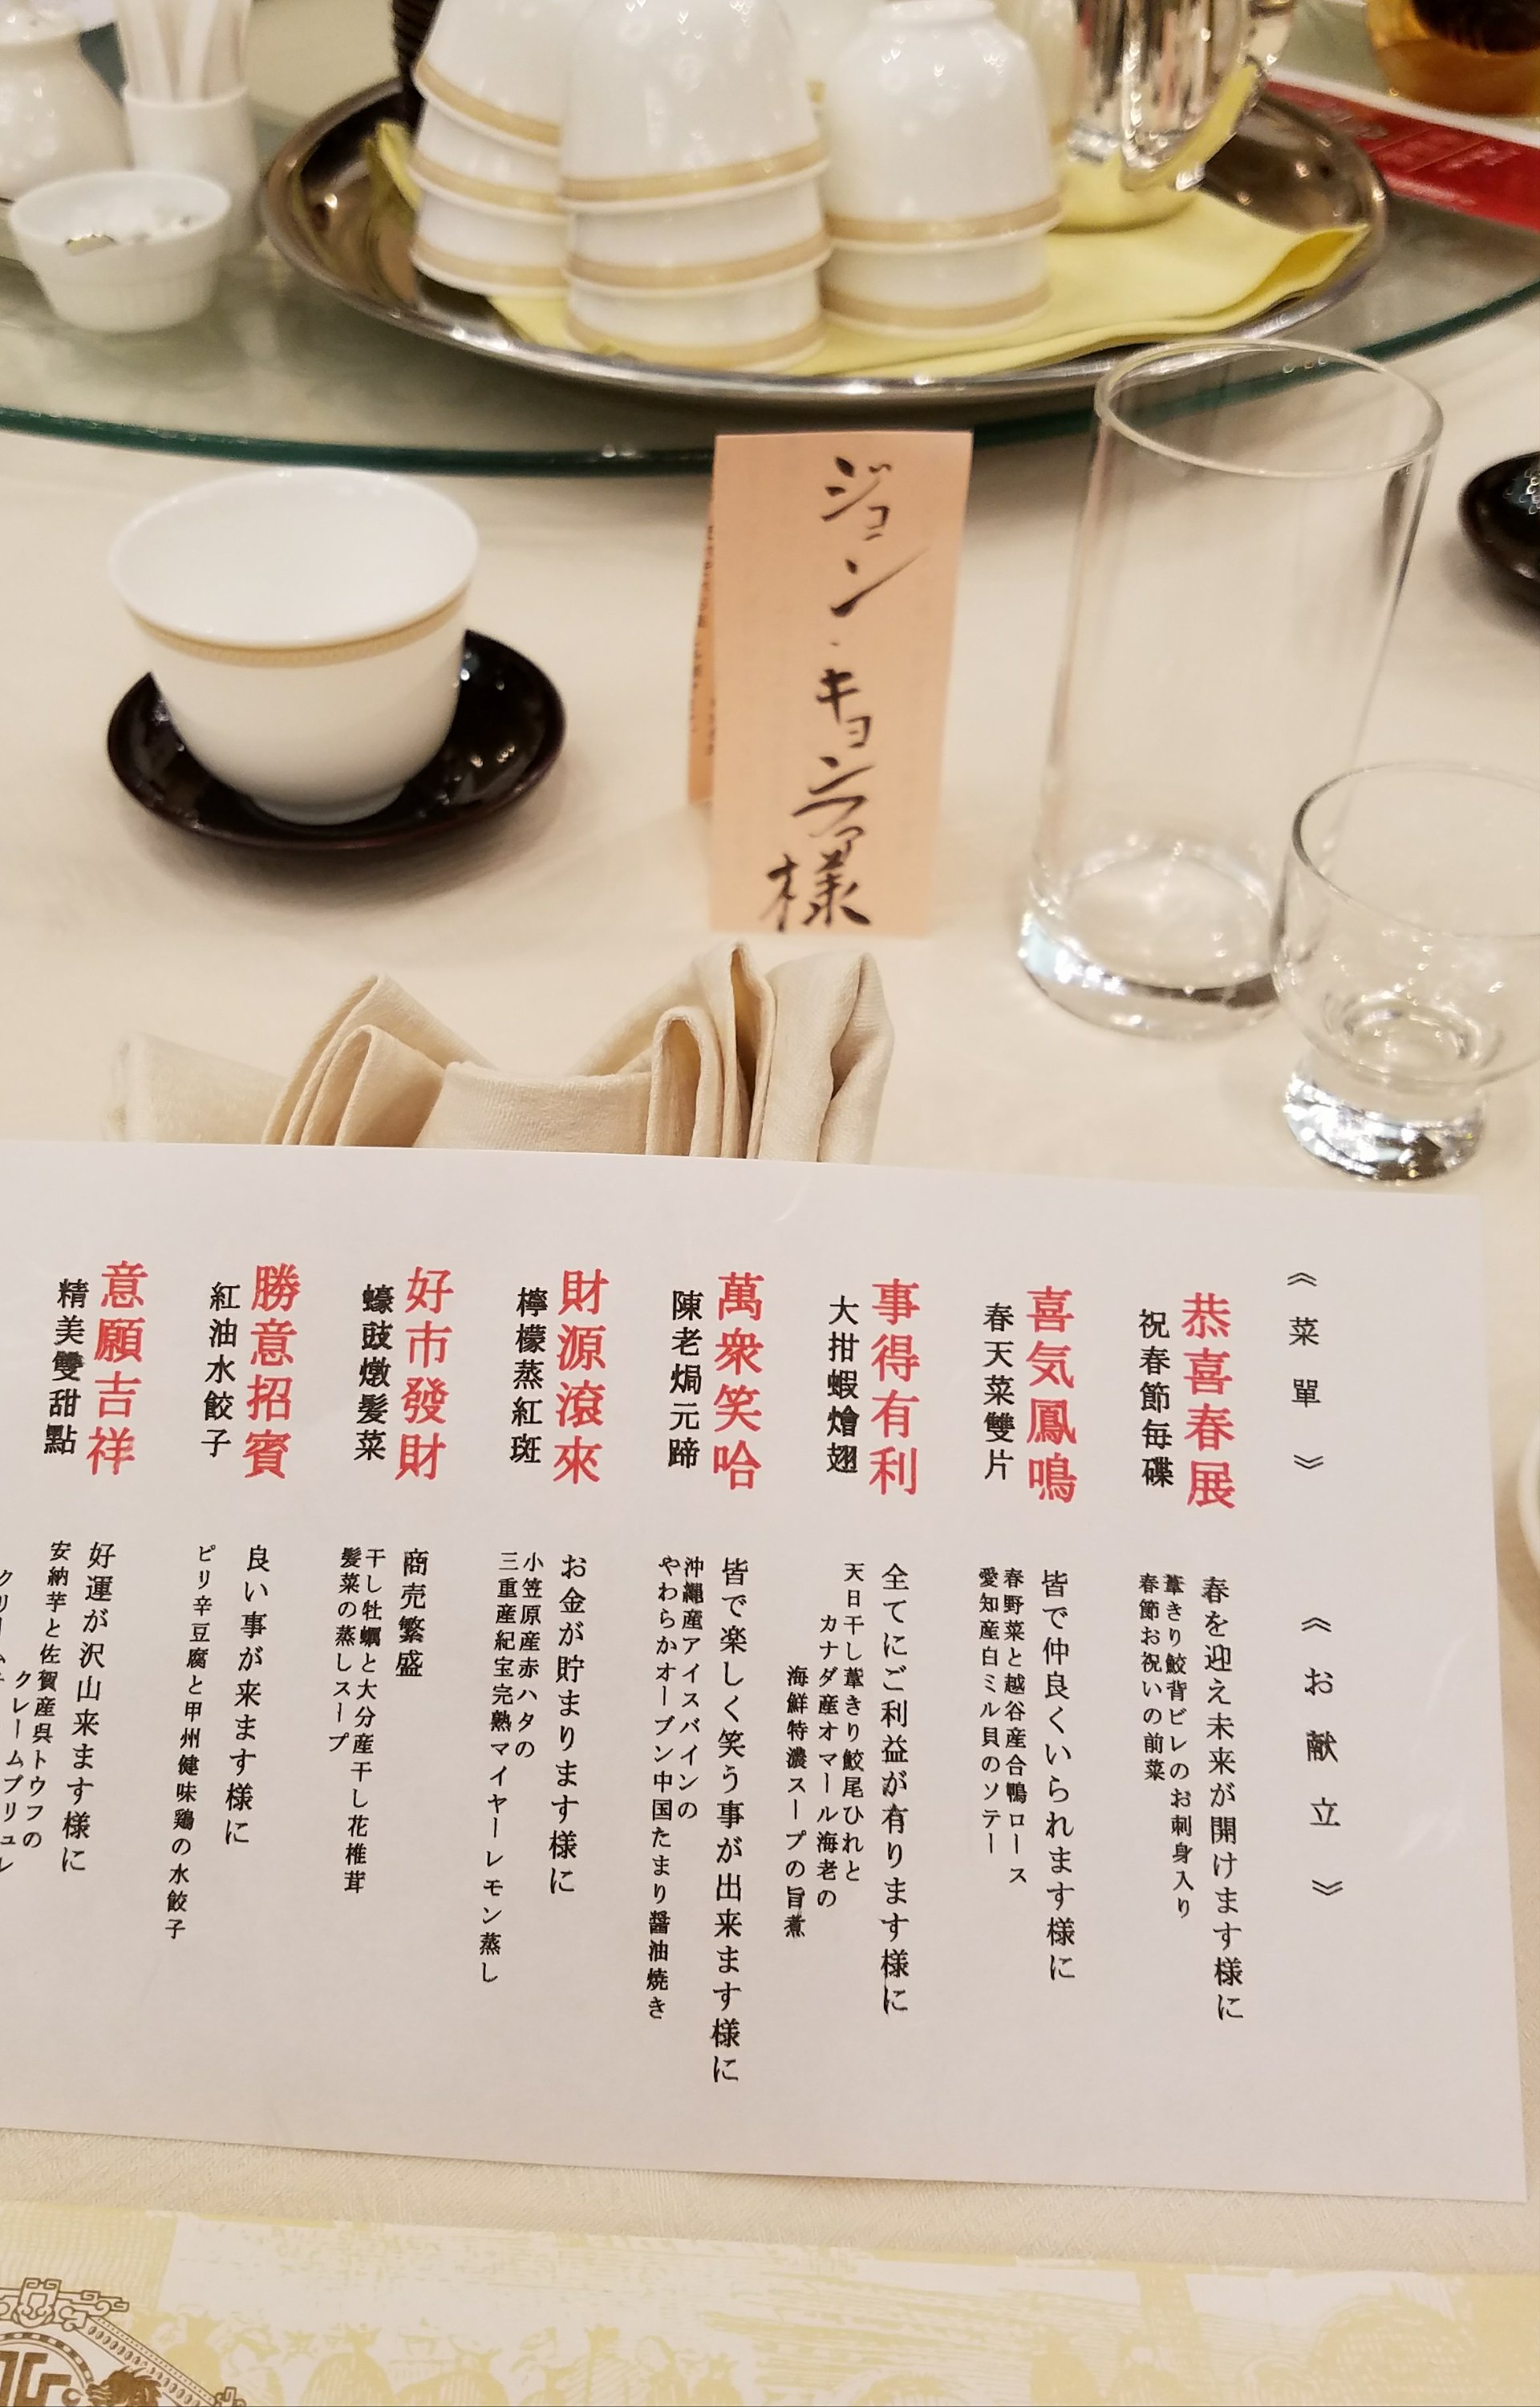 ジョン・キョンファ様
《菜單》
《お献立》
恭喜春展
祝春節毎碟
春を迎え未来が開けます様に
葦きり鮫背ビレのお刺身入り
春節お祝いの前菜
喜気鳳鳴
春天菜雙片
皆で仲良くいられます様に
春野菜と越谷産合鴨ロース
愛知産白ミル貝のソテー
事得有利
大拑蝦燴翅
全てにご利益が有ります様に
天日干し葦きり鮫尾ひれと
カナダ産オマール海老の
海鮮特濃スープの旨煮
萬衆笑哈
陳老焗元蹄
皆で楽しく笑う事が出来ます様に
沖縄産アイスバインの
やわらかオーブン中国たまり醤油焼き
財源滾來
檸檬蒸紅斑
お金が貯まります様に
小笠原産赤ハタの
三重産紀宝完熟マイヤーレモン蒸し
好市發財
蠔豉燉髪菜
商売繁盛
干し牡蠣と大分産干し花椎茸
髪菜の蒸しスープ
勝意招賓
紅油水餃子
良い事が来ます様に
ピリ辛豆腐と甲州健味鶏の水餃子
意願吉祥
精美雙甜點
好運が沢山来ます様に
安納芋と佐賀産呉トウフの
クレームブリュレ